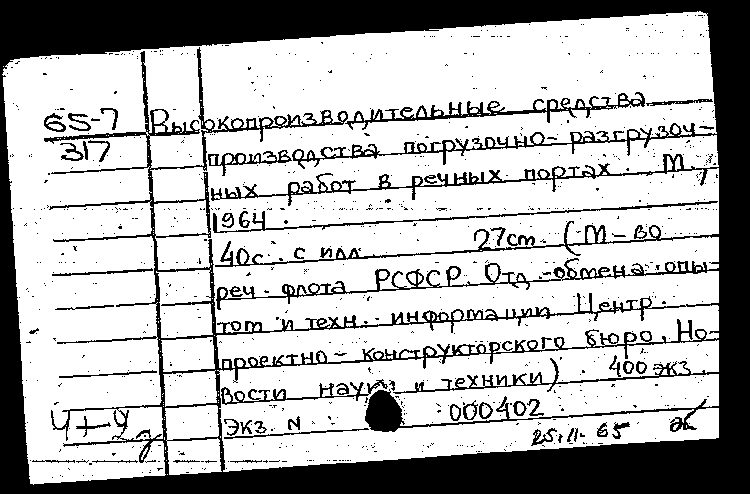 65-7 Высокопроизводительные средства
317 производства погрузочно-разгрузоч-
ных работ в речных портах. М.,
1964.
40с. с илл. 27см. (М-во
реч. флота РСФСР. Отд. обмена опы-
том и техн. информации Центр.
проектно-конструкторского бюро. Но-
вости науки и техники) 400 экз.
Экз. N 000402
25.II.65